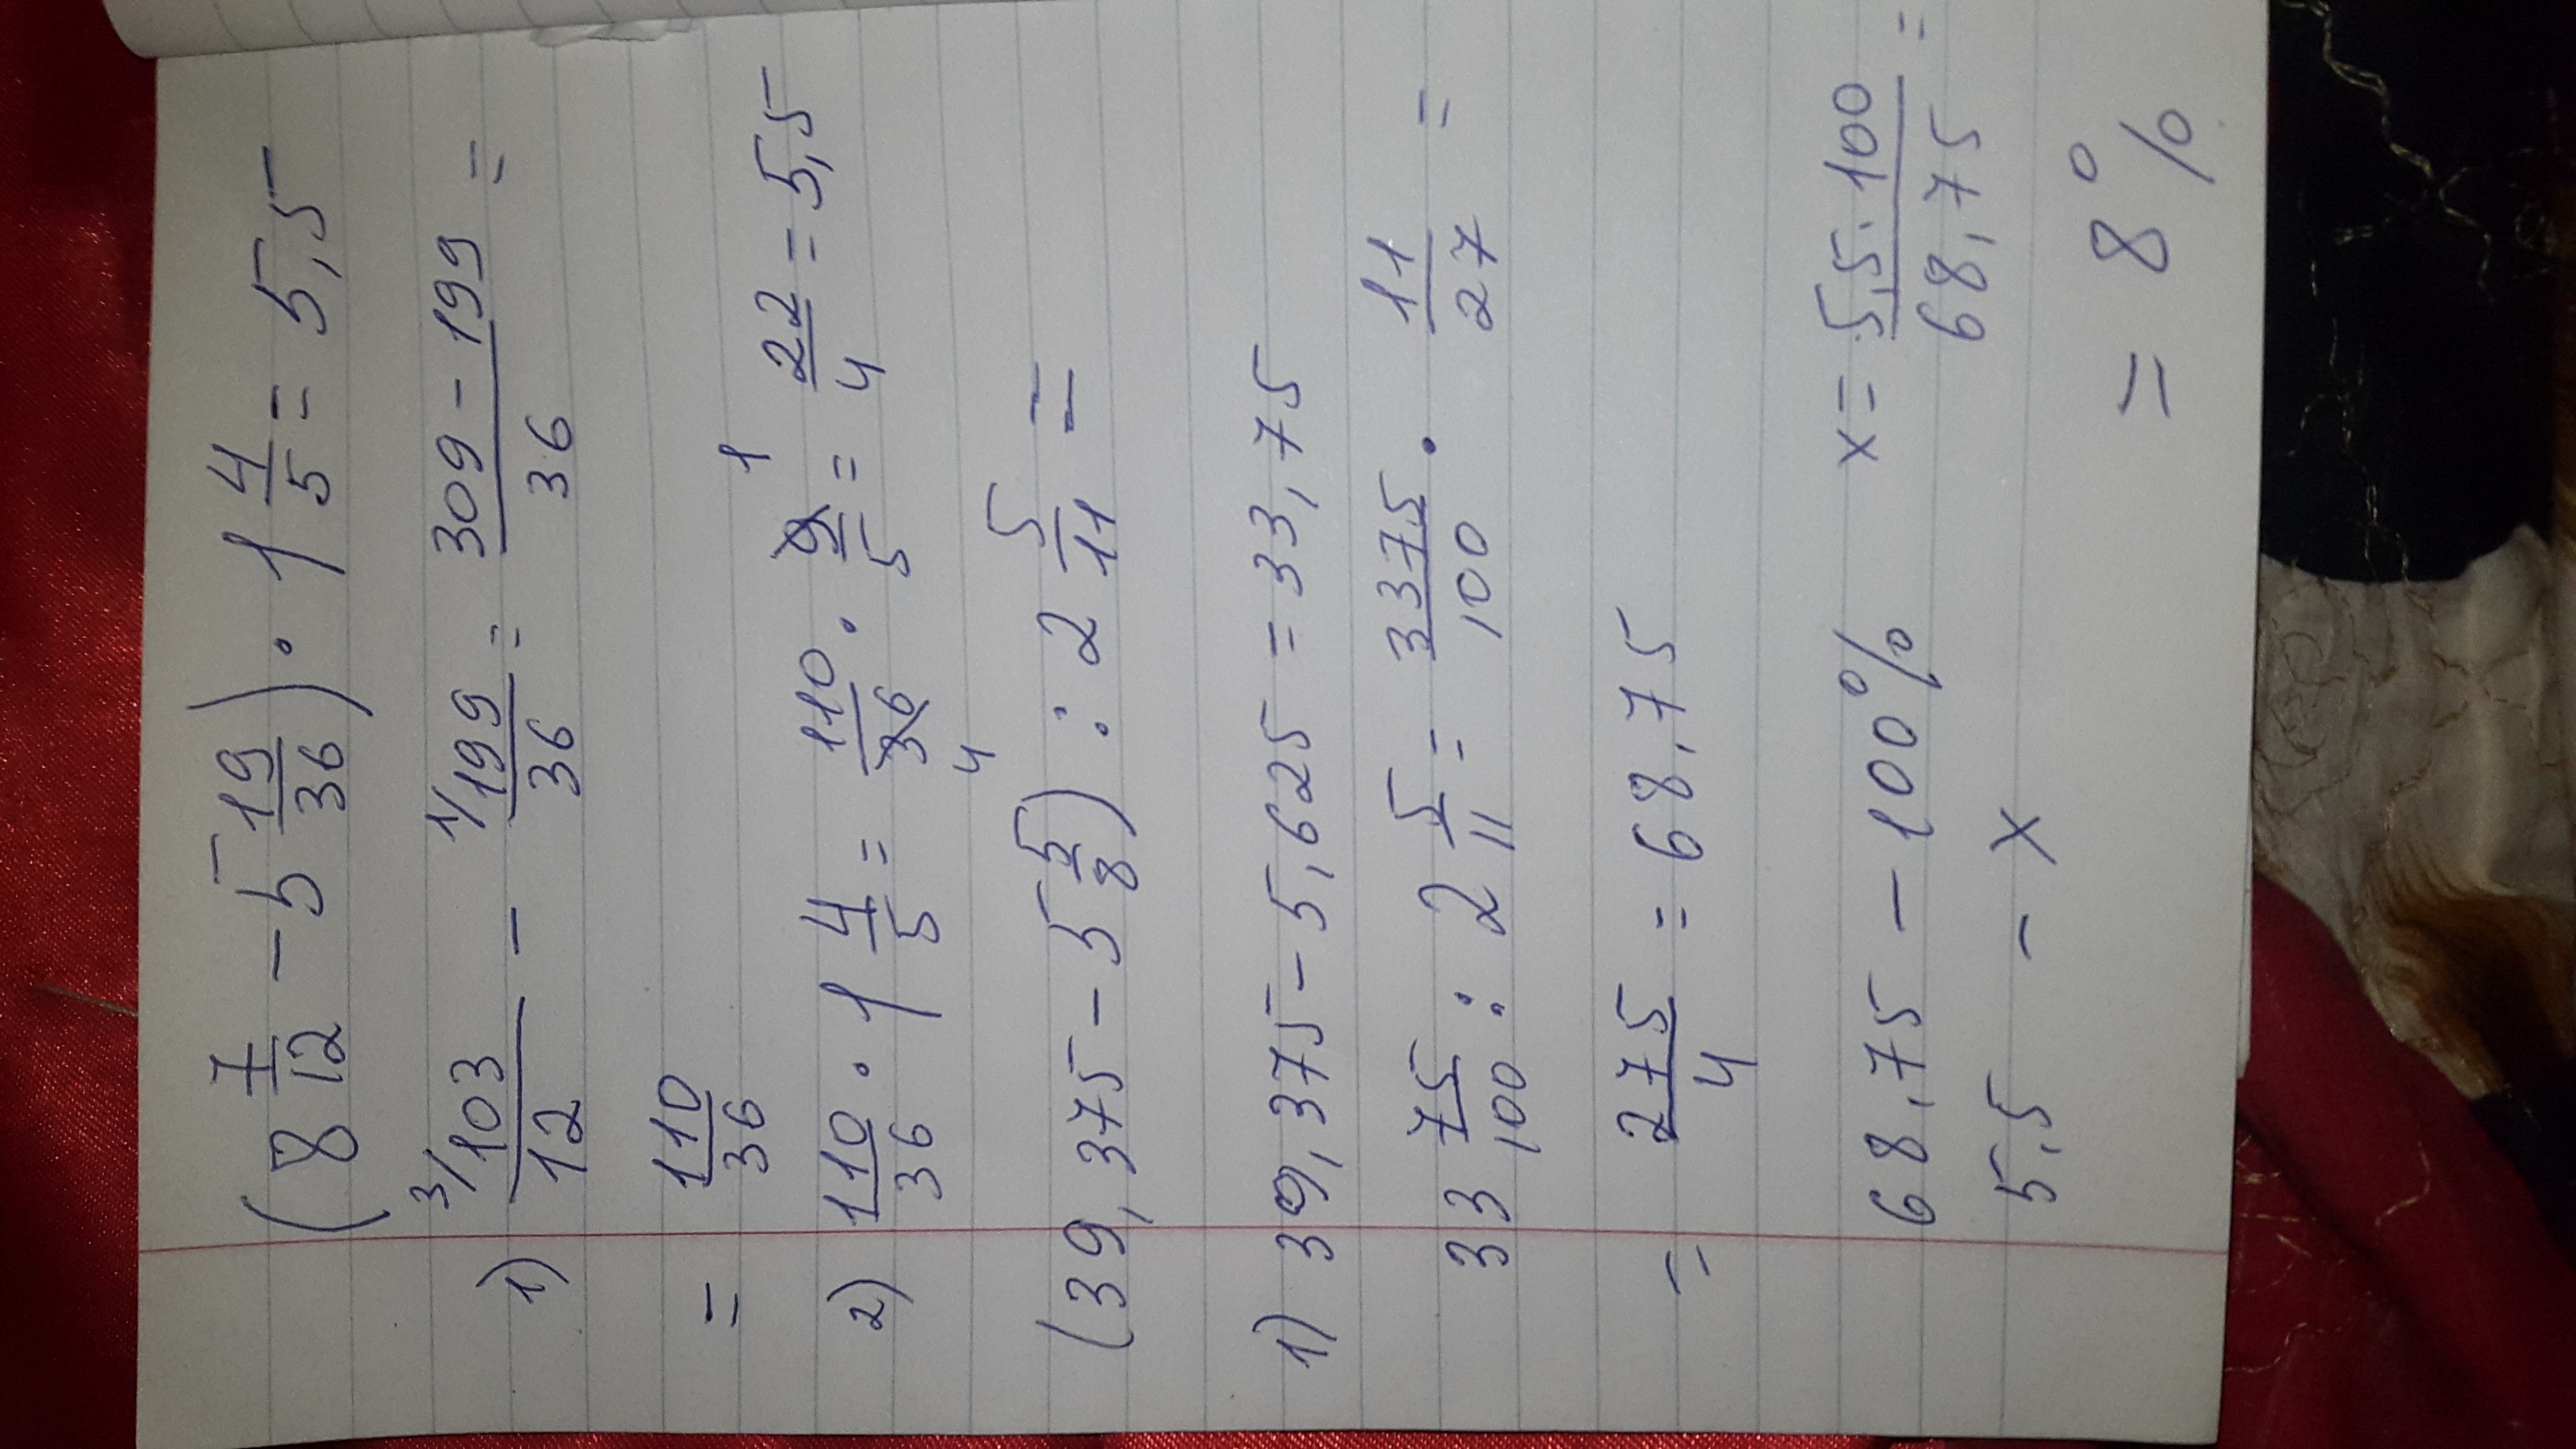 (8 7/12 - 5 19/36) · 1 4/5 = 5,5
1) 3/ 103/12 - 1/ 199/36 = (309 - 199)/36 =
= 110/36
2) 110/36 · 1 4/5 = 110/36 4 · 9/5 1 = 22/4 = 5,5
(39,375 - 5 5/8) : 2 5/11 =
1) 39,375 - 5,625 = 33,75
33 75/100 : 2 5/11 = 3375/100 · 11/27 =
= 275/4 = 68,75
68,75 - 100% x = 5,5·100/68,75 =
5,5 - x = 8%